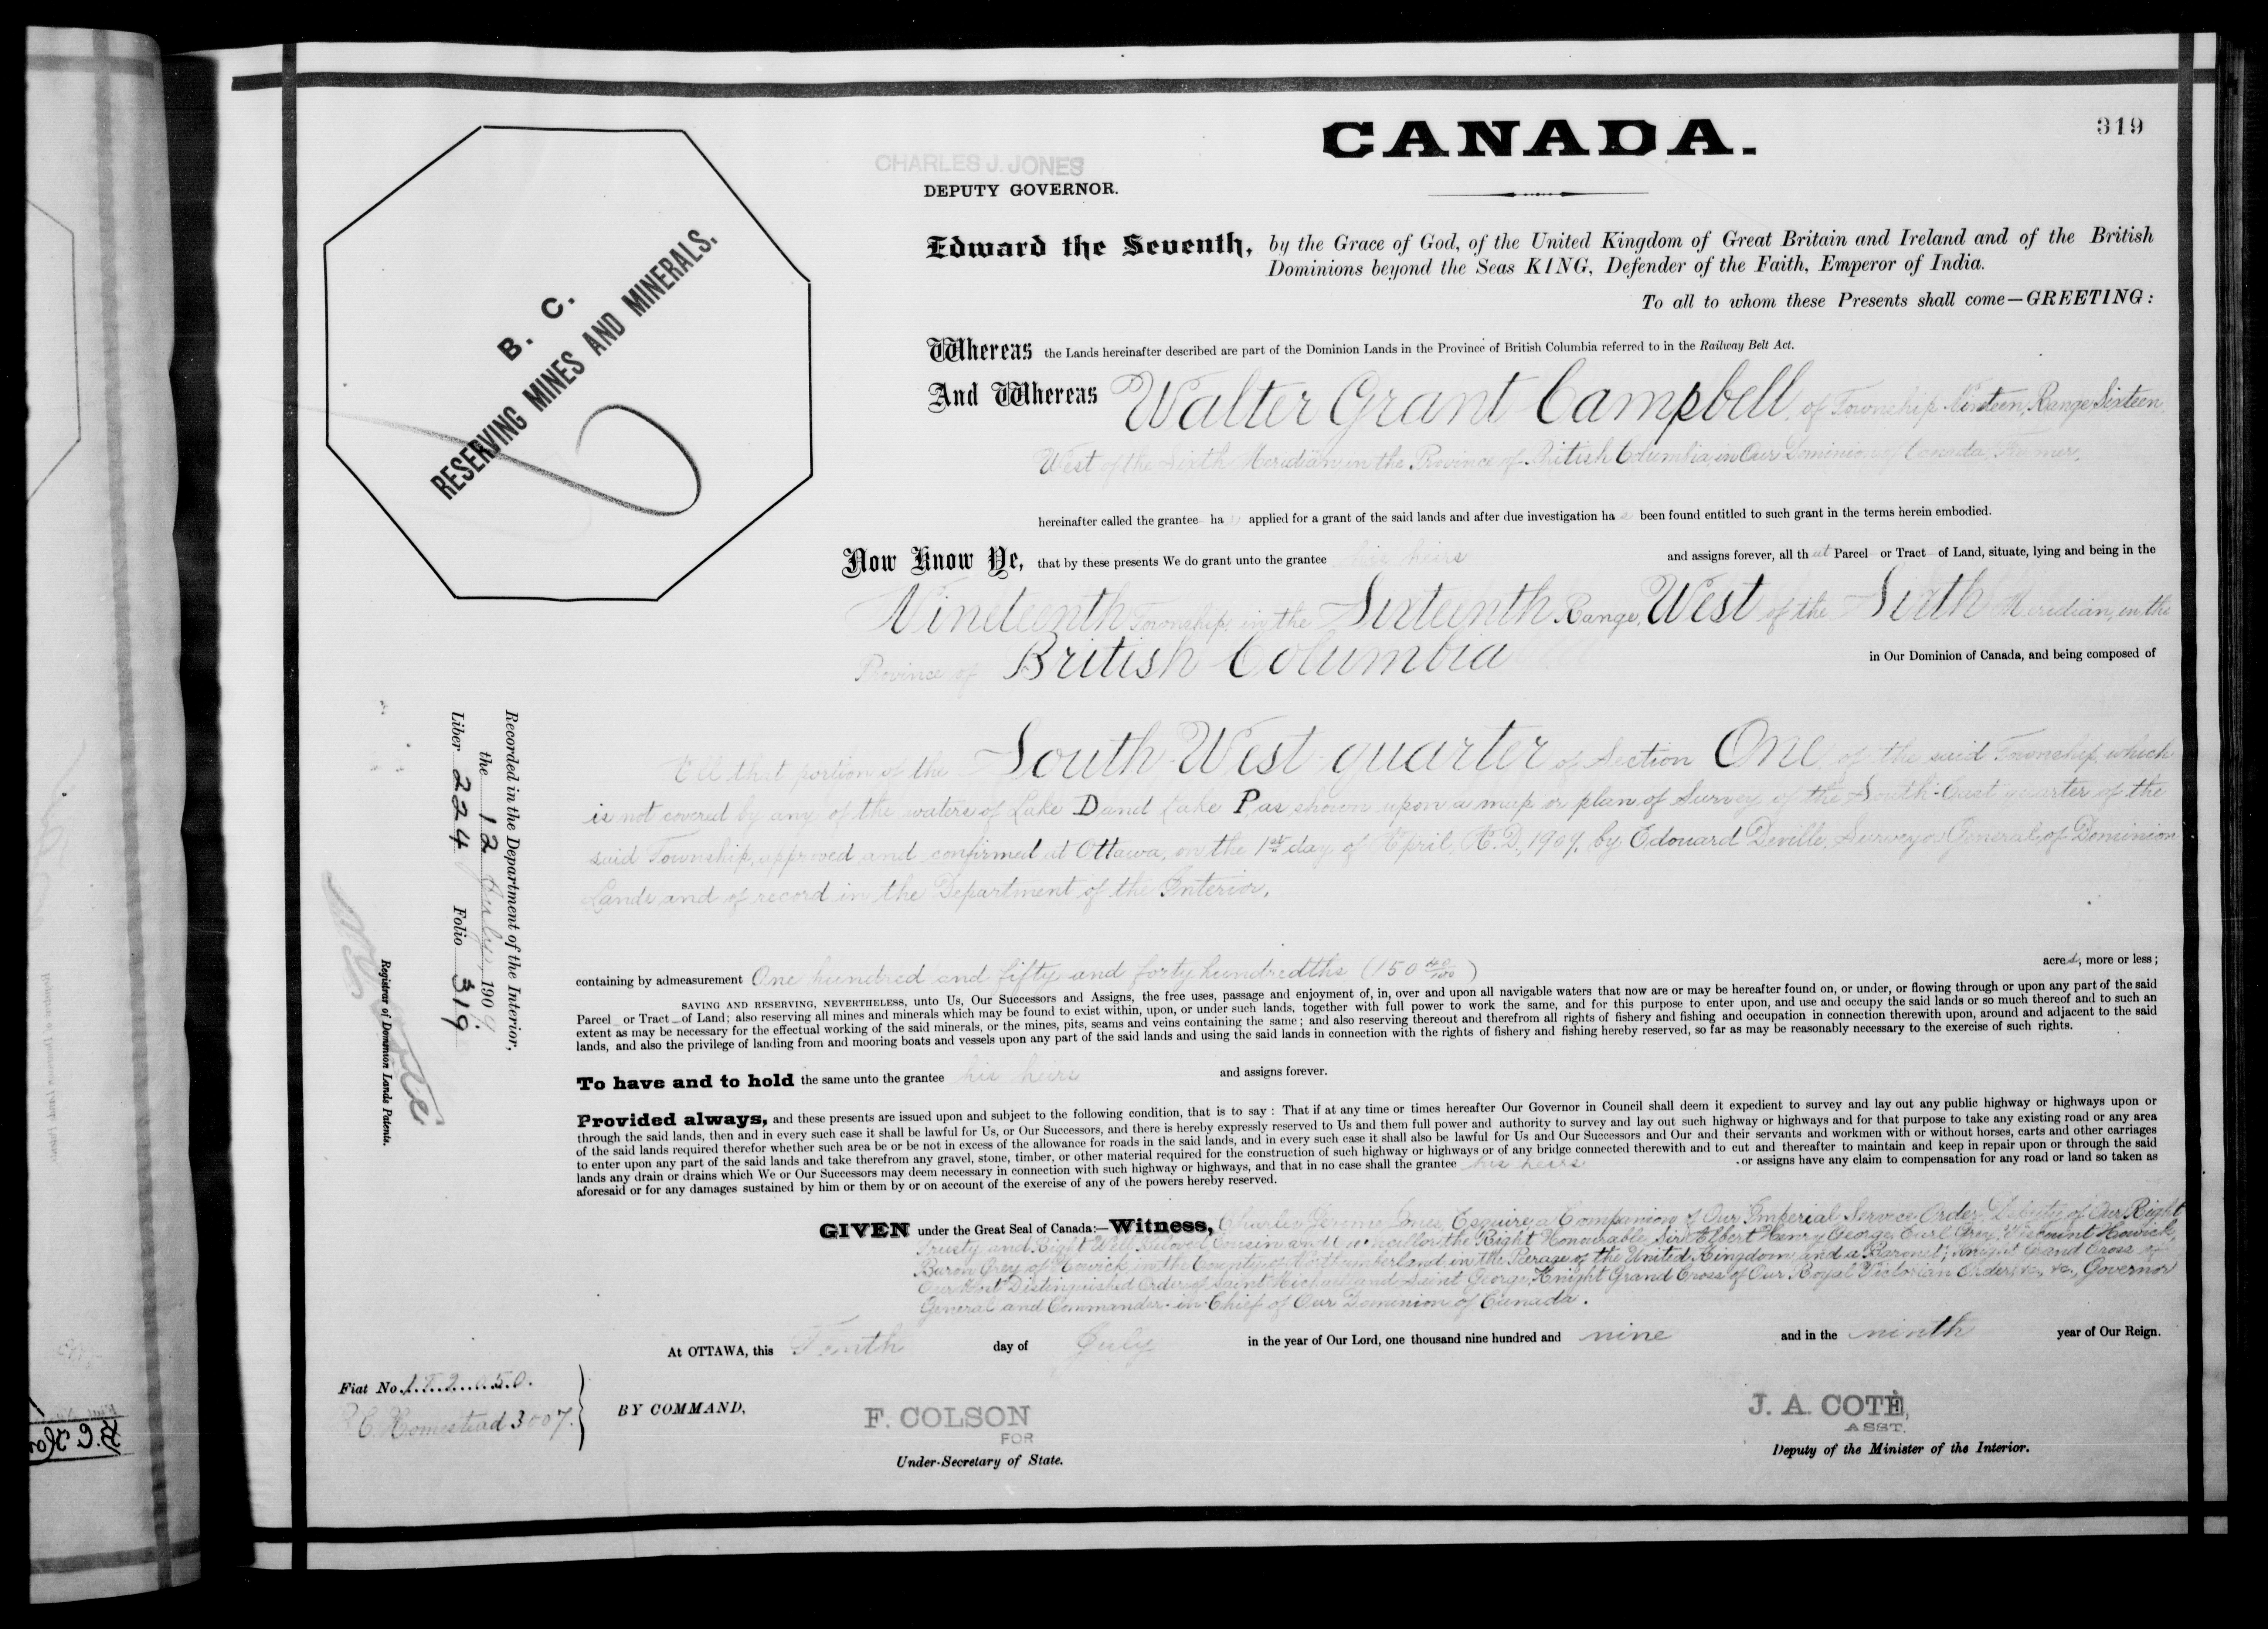 319
CANADA.
CHARLES J. JONES
DEPUTY GOVERNOR.
B. C.
RESERVING MINES AND MINERALS.
Edward the Seventh, by the Grace of God, of the United Kingdom of Great Britain and Ireland and of the British
Dominions beyond the Seas KING, Defender of the Faith, Emperor of India.
To all to whom these Presents shall come—GREETING:
Whereas the Lands hereinafter described are part of the Dominion Lands in the Province of British Columbia referred to in the Railway Belt Act.
And Whereas Walter Grant Campbell, of Township Nineteen, Range Sixteen,
West of the Sixth Meridian in the Province of British Columbia, in Our Dominion of Canada, Farmer,
hereinafter called the grantee ha applied for a grant of the said lands and after due investigation ha s been found entitled to such grant in the terms herein embodied.
Now Know Ye, that by these presents We do grant unto the grantee his heirs and assigns forever, all that Parcel or Tract of Land, situate, lying and being in the
Nineteenth Township, in the Sixteenth Range, West of the Sixth Meridian, in the
Province of British Columbia in Our Dominion of Canada, and being composed of
All that portion of the South West quarter of Section One of the said Township, which
is not covered by any of the waters of Lake D and Lake P, as shown upon a map or plan of Survey of the South-East quarter of the
said Township, approved and confirmed at Ottawa, on the 1st day of April, A.D. 1909, by Edouard Deville, Surveyor General of Dominion
Lands and of record in the Department of the Interior,
containing by admeasurement One hundred and fifty and forty hundredths (150 40/100) acres, more or less;
SAVING AND RESERVING, NEVERTHELESS, unto Us, Our Successors and Assigns, the free uses, passage and enjoyment of, in, over and upon all navigable waters that now are or may be hereafter found on, or under, or flowing through or upon any part of the said
Parcel or Tract of Land; also reserving all mines and minerals which may be found to exist within, upon, or under such lands, together with full power to work the same, and for this purpose to enter upon, and use and occupy the said lands or so much thereof and to such an
extent as may be necessary for the effectual working of the said minerals, or the mines, pits, seams and veins containing the same; and also reserving thereout and therefrom all rights of fishery and fishing and occupation in connection therewith upon, around and adjacent to the said
lands, and also the privilege of landing from and mooring boats and vessels upon any part of the said lands and using the said lands in connection with the rights of fishery and fishing hereby reserved, so far as may be reasonably necessary to the exercise of such rights.
To have and to hold the same unto the grantee his heirs and assigns forever.
Provided always, and these presents are issued upon and subject to the following condition, that is to say: That if at any time or times hereafter Our Governor in Council shall deem it expedient to survey and lay out any public highway or highways upon or
through the said lands, then and in every such case it shall be lawful for Us, or Our Successors, and there is hereby expressly reserved to Us and them full power and authority to survey and lay out such highway or highways and for that purpose to take any existing road or any area
of the said lands required therefor whether such area be or be not in excess of the allowance for roads in the said lands, and in every such case it shall also be lawful for Us and Our Successors and Our and their servants and workmen with or without horses, carts and other carriages
to enter upon any part of the said lands and take therefrom any gravel, stone, timber, or other material required for the construction of such highway or highways or of any bridge connected therewith and to cut and thereafter to maintain and keep in repair upon or through the said
lands any drain or drains which We or Our Successors may deem necessary in connection with such highway or highways, and that in no case shall the grantee his heirs or assigns have any claim to compensation for any road or land so taken as
aforesaid or for any damages sustained by him or them by or on account of the exercise of any of the powers hereby reserved.
GIVEN under the Great Seal of Canada:—Witness, Charles Jerome Jones, Esquire, a Companion of Our Imperial Service Order, Deputy of Our Right
Trusty and Right Well Beloved Cousin and Councillor the Right Honourable Sir Albert Henry George, Earl Grey, Viscount Howick,
Baron Grey of Howick in the County of Northumberland, in the Peerage of the United Kingdom, and a Baronet; Knight Grand Cross of
Our Most Distinguished Order of Saint Michael and Saint George, Knight Grand Cross of Our Royal Victorian Order, &c., &c., Governor
General and Commander-in-Chief of Our Dominion of Canada.
At OTTAWA, this Tenth day of July in the year of Our Lord, one thousand nine hundred and nine and in the ninth year of Our Reign.
Fiat No.
B.C. Homestead 3007.
BY COMMAND,
F. COLSON
FOR
Under-Secretary of State.
J. A. COTÉ,
ASST.
Deputy of the Minister of the Interior.
Recorded in the Department of the Interior,
the 12 July 1909
Liber 224 Folio 319
Registrar of Dominion Lands Patents.